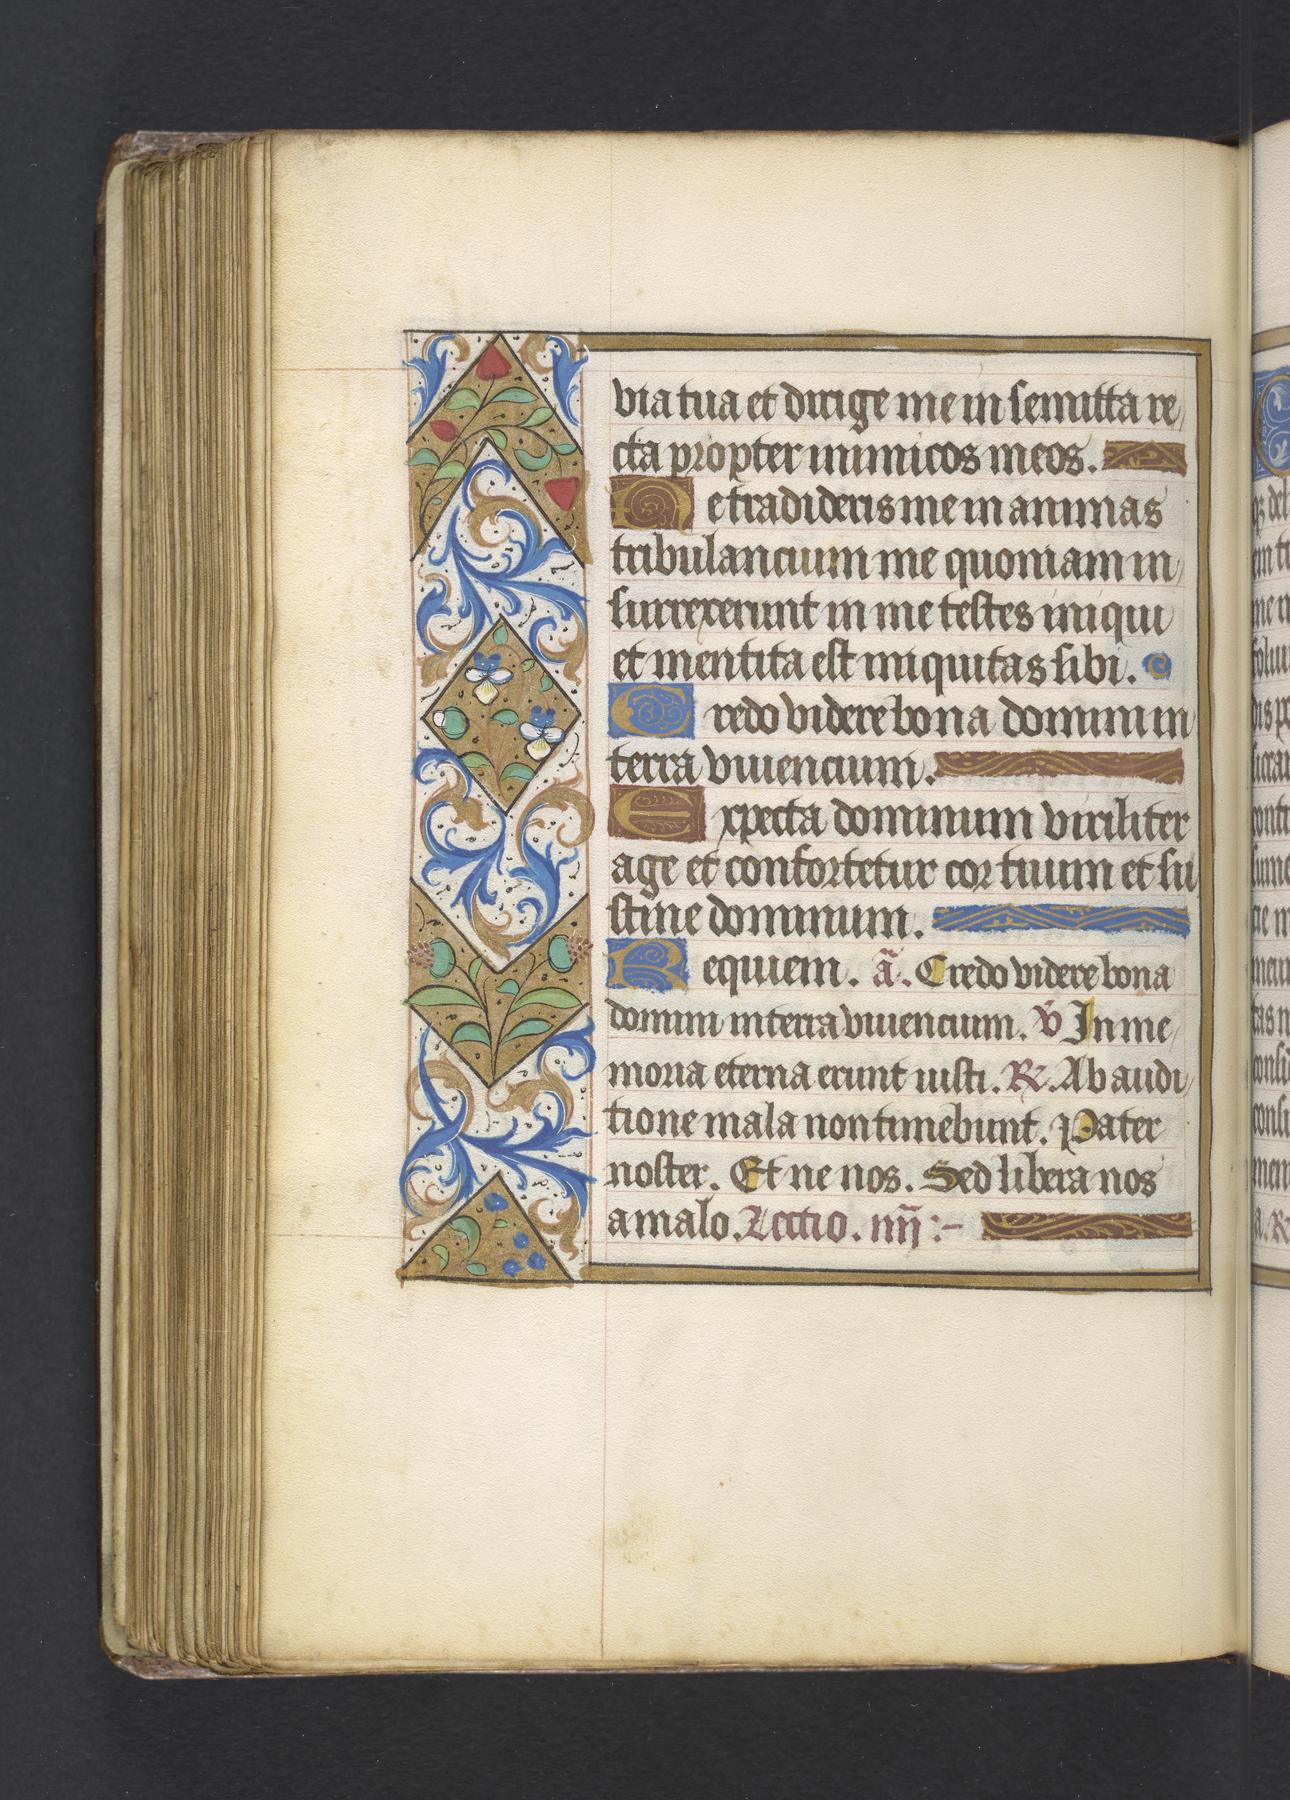 via tua et dirige me in semitta re
cta propter inimicos meos.
Ne tradideris me in animas
tribulancium me quoniam in
surrexerunt in me testes iniqui
et mentita est iniquitas sibi.
Credo videre bona domini in
terra viuencium.
Expecta dominum viriliter
age et confortetur cor tuum et su
stine dominum.
Requiem. ã. Credo videre bona
domini in terra viuencium. v̄ In me
moria eterna erunt iusti. ℟. Ab audi
tione mala non timebunt. Pater
noster. Et ne nos. Sed libera nos
a malo. Lectio. iiij :-